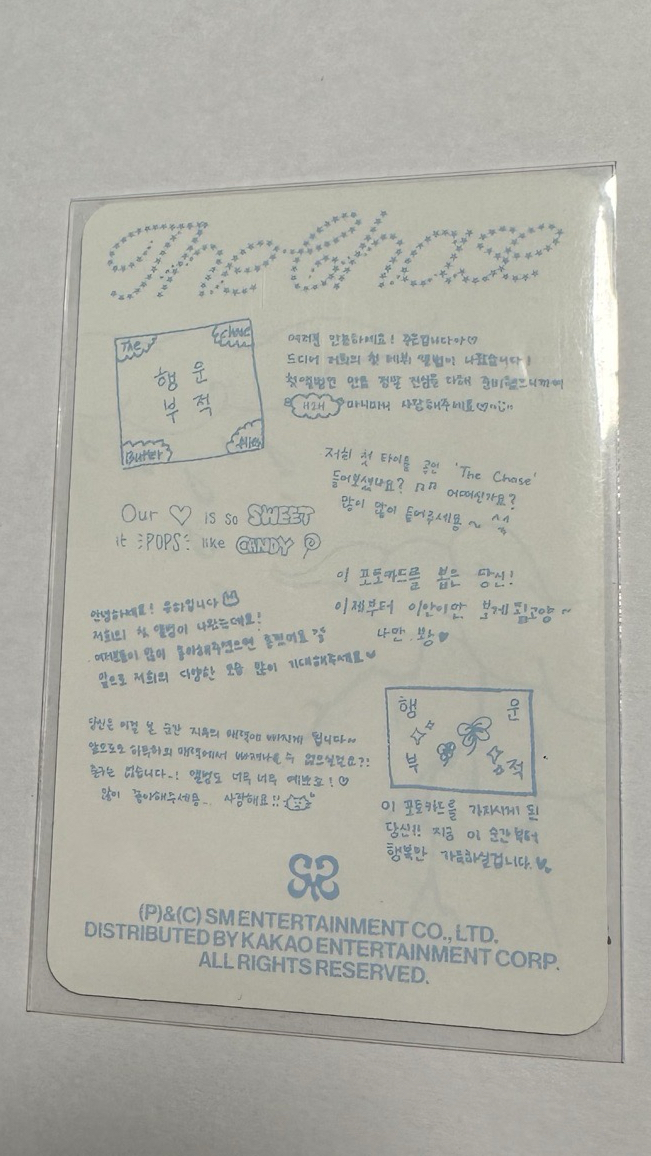 The Chase
The
Chase
행 운
부 적
Butter
flies
여러분 안녕하세요! 주은입니다아♡
드디어 저희의 첫 데뷔 앨범이 나왔습니다!
첫앨범인 만큼 정말 진심을 다해 준비했으니까여
H2H 마니마니 사랑해주세요♡
저희 첫 타이틀 곡인 'The Chase'
들어보셨나요? ♫♫ 어떠신가요?
많이 많이 들어주세용~ ^^
Our ♡ is so SWEET
it POPS like CANDY
이 포토카드를 뽑은 당신!
이제부터 이안이만 보게 될고양~
나만.봐♥
안녕하세요! 유하입니다
저희의 첫 앨범이 나왔는데요!
여러분들이 많이 좋아해주셨으면 좋겠어요
앞으로 저희의 다양한 모습 많이 기대해주세요♥
당신은 이걸 본 순간 지우의 매력에 빠지게 됩니다~
앞으로도 하투하의 매력에서 빠져나올 수 없으실걸요?!
출구는 없습니다..! 앨범도 너무 너무 예쁘죠!♡
많이 좋아해주세용.. 사랑해요!!
행 운
부 적
이 포토카드를 가지시게 된
당신!! 지금 이 순간부터
행복만 가득하실겁니다.♥
(P)&(C) SM ENTERTAINMENT CO., LTD.
DISTRIBUTED BY KAKAO ENTERTAINMENT CORP.
ALL RIGHTS RESERVED.